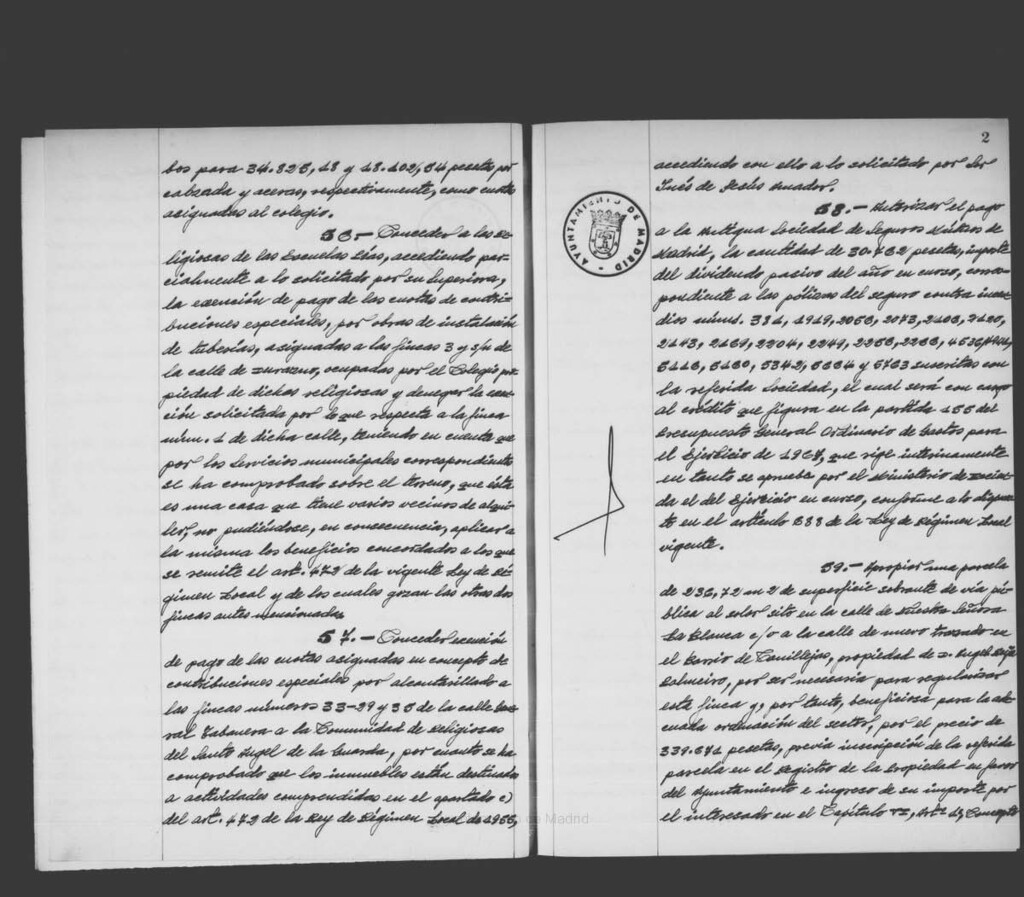 bos para 34.826,18 y 18.402,64 pesetas por
calzada y aceras, respectivamente, como cuotas
asignadas al colegio.
56.- Conceder a las Re-
ligiosas de las Escuelas Pías, accediendo par-
cialmente a lo solicitado por su Superiora,
la exención de pago de las cuotas de contri-
buciones especiales, por obras de instalación
de tuberías, asignadas a las fincas 3 y s/n de
la calle de ocupadas por el Colegio pro-
piedad de dichas religiosas y denegar la exen-
ción solicitada por lo que respecta a la finca
núm. 1 de dicha calle, teniendo en cuenta que
por los Servicios municipales correspondientes
se ha comprobado sobre el terreno, que ésta
es una casa que tiene varios vecinos de alqui-
ler, no pudiéndose, en consecuencia, aplicar a
la misma los beneficios concordados a los que
se remite el art. 472 de la vigente Ley de Ré-
gimen Local y de los cuales gozan las otras dos
fincas antes mencionadas
57.- Conceder exención
de pago de las cuotas asignadas en concepto de
contribuciones especiales por alcantarillado a
las fincas números 33-29 y 35 de la calle Gene-
ral Tabanera a la Comunidad de Religiosas
del Santo Angel de la Guarda, por cuanto se ha
comprobado que los inmuebles están destinados
a actividades comprendidas en el apartado c)
del art. 472 de la Ley de Régimen Local de 1955,
2
accediendo con ello a lo solicitado por Sor
Inés de Jesús Amador.
58.- Autorizar el pago
a la Antigua Sociedad de Seguros Mútuos de
Madrid, la cantidad de 30.762 pesetas, importe
del dividendo pasivo del año en curso, corres-
pondiente a las pólizas del seguro contra incen-
dios núms.
suscritas con
la referida Sociedad, el cual será con cargo
al crédito que figura en la partida 155 del
Presupuesto General Ordinario de Gastos para
el Ejercicio de 1967, que rige interinamente
en tanto se aprueba por el Ministerio de Hacien-
da el del Ejercicio en curso, conforme a lo dispues-
to en el artículo 688 de la Ley de Régimen Local
vigente.
59.- Apropiar una parcela
de 236,72 m2 de superficie sobrante de vía pú-
blica al solar sito en la calle de Nuestra Señora
La Blanca c/v a la calle de nuevo trazado en
el Barrio de Canillejas, propiedad de D. Angel
Palmeiro, por ser necesaria para regularizar
esta finca y, por tanto, beneficiosa para la ade-
cuada ordenación del sector, por el precio de
339.671 pesetas, previa inscripción de la referida
parcela en el Registro de la Propiedad en favor
del Ayuntamiento e ingreso de su importe por
el interesado en el Capítulo Artº Concepto
AYUNTAMIENTO DE MADRID
de Madrid